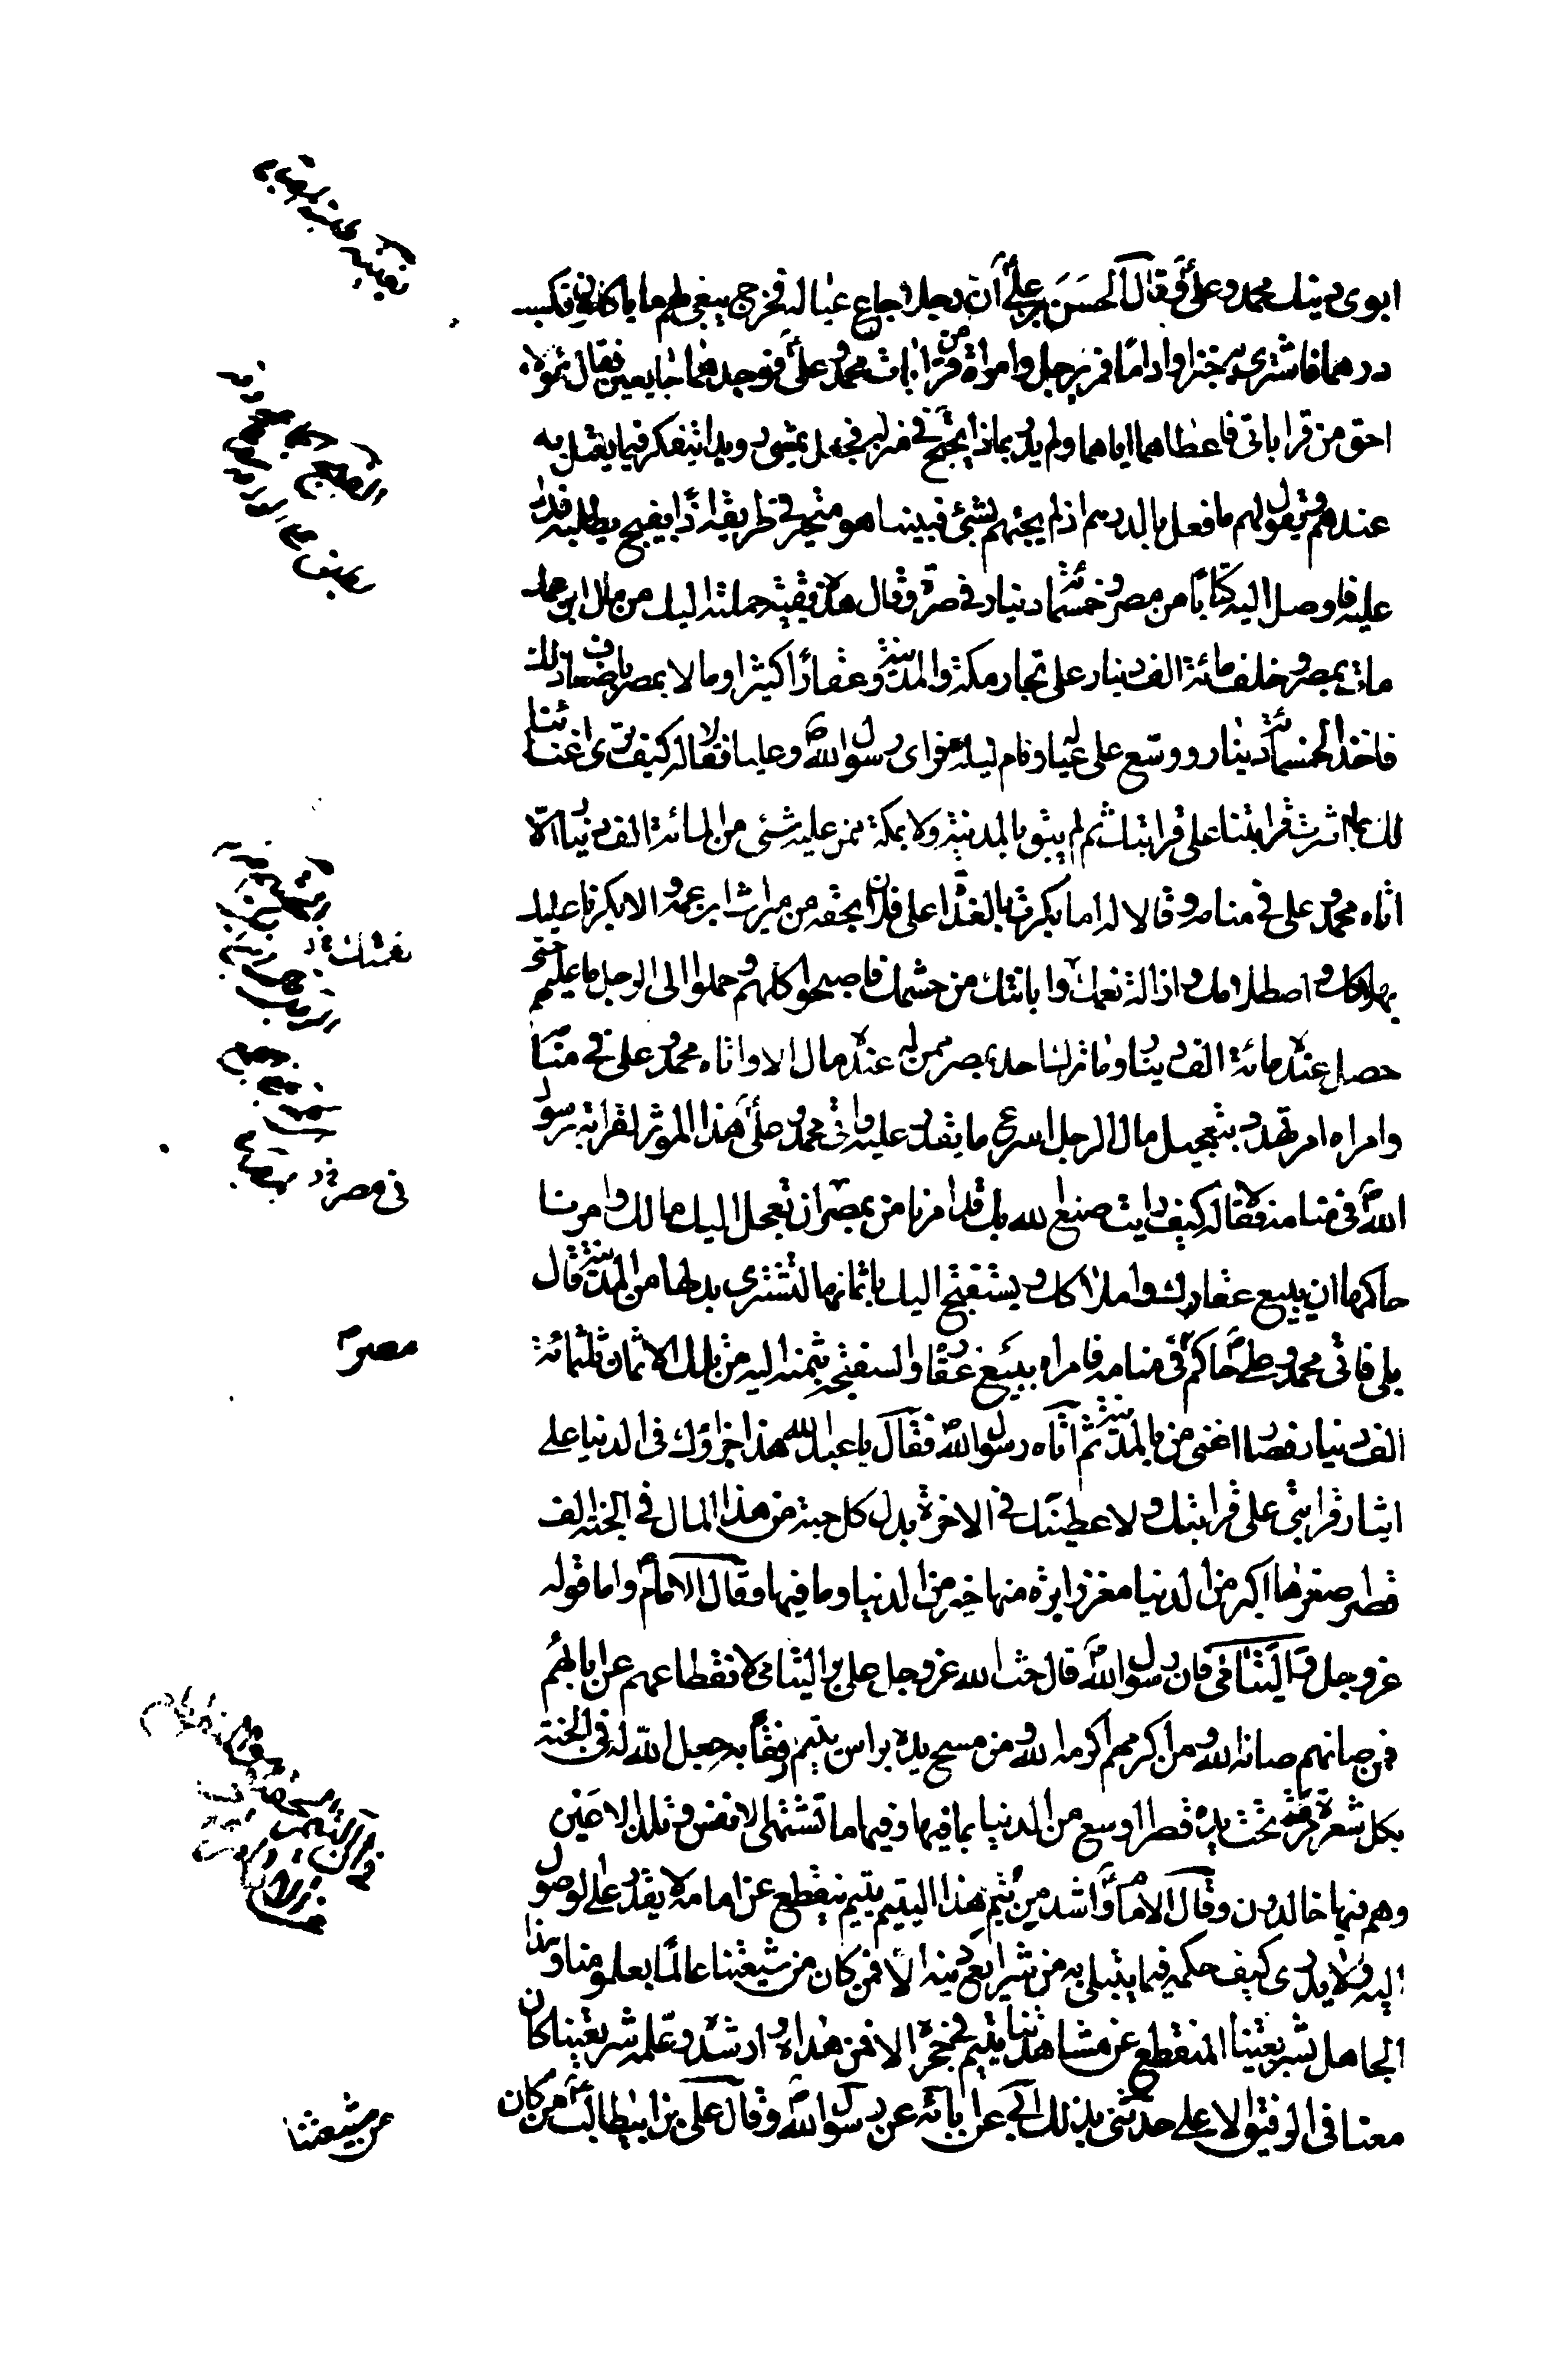 ابوى دينك محمد وعلى وقال الحسن بن على ان رجلا جاع عياله فخرج يبغى لهم ما ياكلون فكسب
درهما فاشترى به خبزا واداما فمر برجل وامراة من قرابات محمد وعلى فوجدهما جايعين فقال هؤلاء
احق من قراباتى فاعطاهما اياهما ولم يدر بماذا يحتج فى منزله فجعل يمشى رويدا يتفكر فيما يعتل به
عندهم ويقول لهم ما فعل بالدرهم اذ لم يجئهم بشئ فبينما هو متحير فى طريقه اذا بفيج يطلبه فدل
عليه فاوصل اليه كتابا من مصر وخمسمائة دينار فى صرة وقال هذه بقية حملتها اليك من مال ابن عمك
مات بمصر وخلف مائة الف دينار على تجار مكة والمدينة وعقارا كثيرا ومالا بمصر باضعاف ذلك
فاخذ الخمسمائة دينار ووسع على عياله ونام ليلته فراى رسول الله وعليا فقالا له كيف ترى اغنائنا
لك لما اثرت قرابتنا على قرابتك ثم لم يبق بالمدينة ولا بمكة ممن عليه شئ من المائة الف دينار الا
اتاه محمد وعلى فى منامه وقالا له اما بكرت بالغداة على فلان بحقه من ميراث ابن عمه والا بكرنا عليك
بهلاكك واصطلامك وازالة نعمك وابانتك من حشمك فاصبحوا كلهم وحملوا الى الرجل ما عليهم حتى
حصل عنده مائة الف دينار وما ترك احد بمصر ممن له عنده مال الا واتاه محمد وعلى فى منامه
وامراه امر تهدد بتعجيل مال الرجل اسرع ما يقدر عليه واتى محمد وعلى هذا الموثر لقرابة رسول
الله فى منامه فقالا له كيف رايت صنع الله بك قد امرنا من بمصر ان يعجل اليك مالك وامرنا
حاكمها ان يبيع عقارك واملاكك ويستفتج اليك باثمانها لتشترى بدلها من المدينة قال
بلى فاتى محمد وعلى حاكم فى منامه فامراه ببيع عقاره والسفتجة بثمنه اليه من تلك الاثمان ثلثمائة
الف دينار فصار اغنى من بالمدينة ثم اتاه رسول الله فقال يا عبد الله هذا جزاؤك فى الدنيا على
ايثار قرابتى على قرابتك ولاعطينك فى الاخرة بدل كل حبة من هذا المال فى الجنة الف
قصر اصغرها اكبر من الدنيا مغرز ابرة منها خير من الدنيا وما فيها وقال الامام واما قوله
عز وجل واليتامى فان رسول الله قال حث الله عز وجل على بر اليتامى لانقطاعهم عن ابائهم
فمن صانهم صانه الله ومن اكرمهم اكرمه الله ومن مسح يده براس يتيم رفقا به جعل الله له فى الجنة
بكل شعرة مرت تحت يده قصرا اوسع من الدنيا بما فيها وفيها ما تشتهى الانفس وتلذ الاعين
وهم فيها خالدون وقال الامام واشد من يتم هذا اليتيم يتيم ينقطع عن امامه لا يقدر على الوصول
اليه ولا يدرى كيف حكمه فيما يبتلى به من شرايع دينه الا فمن كان من شيعتنا عالما بعلومنا وهذا
الجاهل بشريعتنا المنقطع عن مشاهدتنا يتيم فى حجره الا فمن هداه وارشده وعلمه شريعتنا كان
معنا فى الرفيق الاعلى حدثنى بذلك ابى عن ابائه عن رسول الله وقال على بن ابيطالب من كان
من شيعتنا
مصر
فى مصر
نعمتك